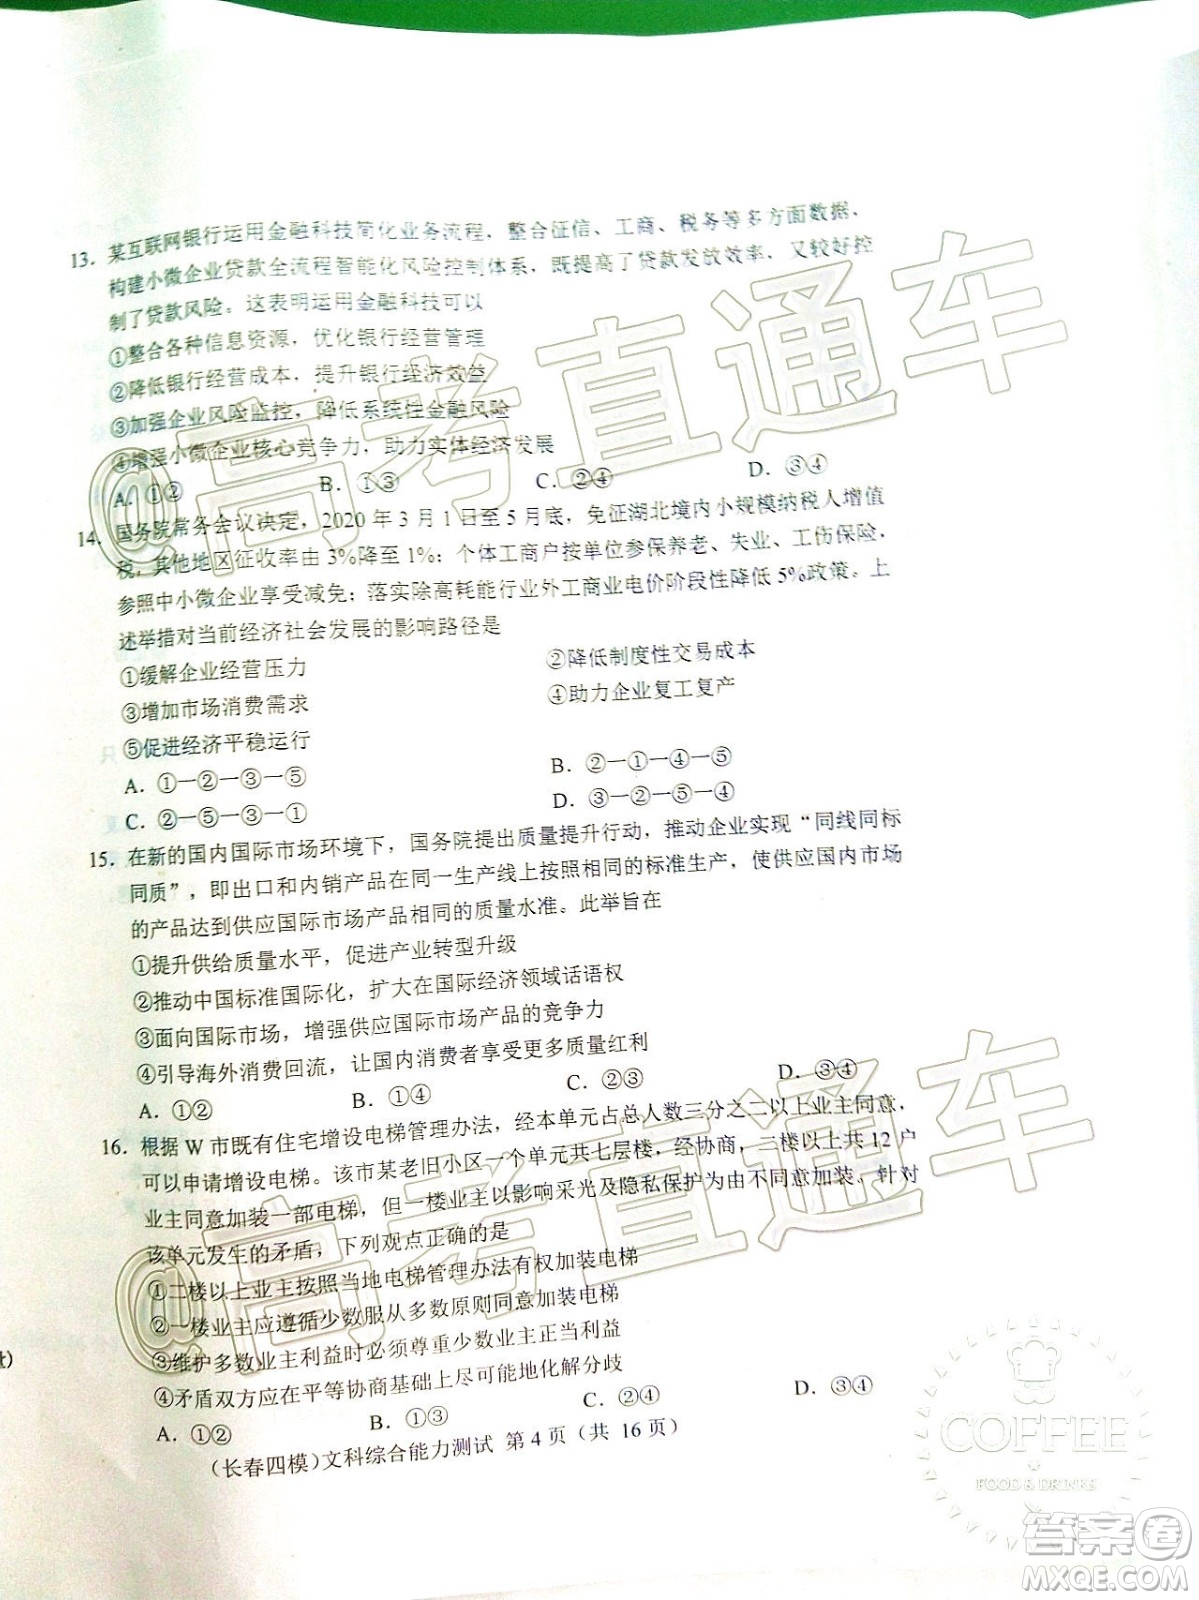 13．某互联网银行运用金融科技简化业务流程，整合征信、工商、税务等多方面数据，
构建小微企业贷款全流程智能化风险控制体系，既提高了贷款发放效率，又较好控
制了贷款风险。这表明运用金融科技可以
①整合各种信息资源，优化银行经营管理
②降低银行经营成本，提升银行经济效益
③加强企业风险监控，降低系统性金融风险
④增强小微企业核心竞争力，助力实体经济发展
A．①② B．①③ C．②④ D．③④
14．国务院常务会议决定，2020年3月1日至5月底，免征湖北境内小规模纳税人增值
税，其他地区征收率由3%降至1%；个体工商户按单位参保养老、失业、工伤保险，
参照中小微企业享受减免；落实除高耗能行业外工商业电价阶段性降低5%政策。上
述举措对当前经济社会发展的影响路径是
①缓解企业经营压力 ②降低制度性交易成本
③增加市场消费需求 ④助力企业复工复产
⑤促进经济平稳运行
A．①—②—③—⑤ B．②—①—④—⑤
C．②—⑤—③—① D．③—②—⑤—④
15．在新的国内国际市场环境下，国务院提出质量提升行动，推动企业实现“同线同标
同质”，即出口和内销产品在同一生产线上按照相同的标准生产，使供应国内市场
的产品达到供应国际市场产品相同的质量水准。此举旨在
①提升供给质量水平，促进产业转型升级
②推动中国标准国际化，扩大在国际经济领域话语权
③面向国际市场，增强供应国际市场产品的竞争力
④引导海外消费回流，让国内消费者享受更多质量红利
A．①② B．①④ C．②③ D．③④
16．根据W市既有住宅增设电梯管理办法，经本单元占总人数三分之二以上业主同意，
可以申请增设电梯。该市某老旧小区一个单元共七层楼，经协商，二楼以上共12户
业主同意加装一部电梯，但一楼业主以影响采光及隐私保护为由不同意加装。针对
该单元发生的矛盾，下列观点正确的是
①二楼以上业主按照当地电梯管理办法有权加装电梯
②一楼业主应遵循少数服从多数原则同意加装电梯
③维护多数业主利益时必须尊重少数业主正当利益
④矛盾双方应在平等协商基础上尽可能地化解分歧
A．①② B．①③ C．②④ D．③④
（长春四模）文科综合能力测试 第4页（共 16页）
@高考直通车
@高考直通车
COFFEE
FOOD & DRINKS
答案卷
MXQE.COM